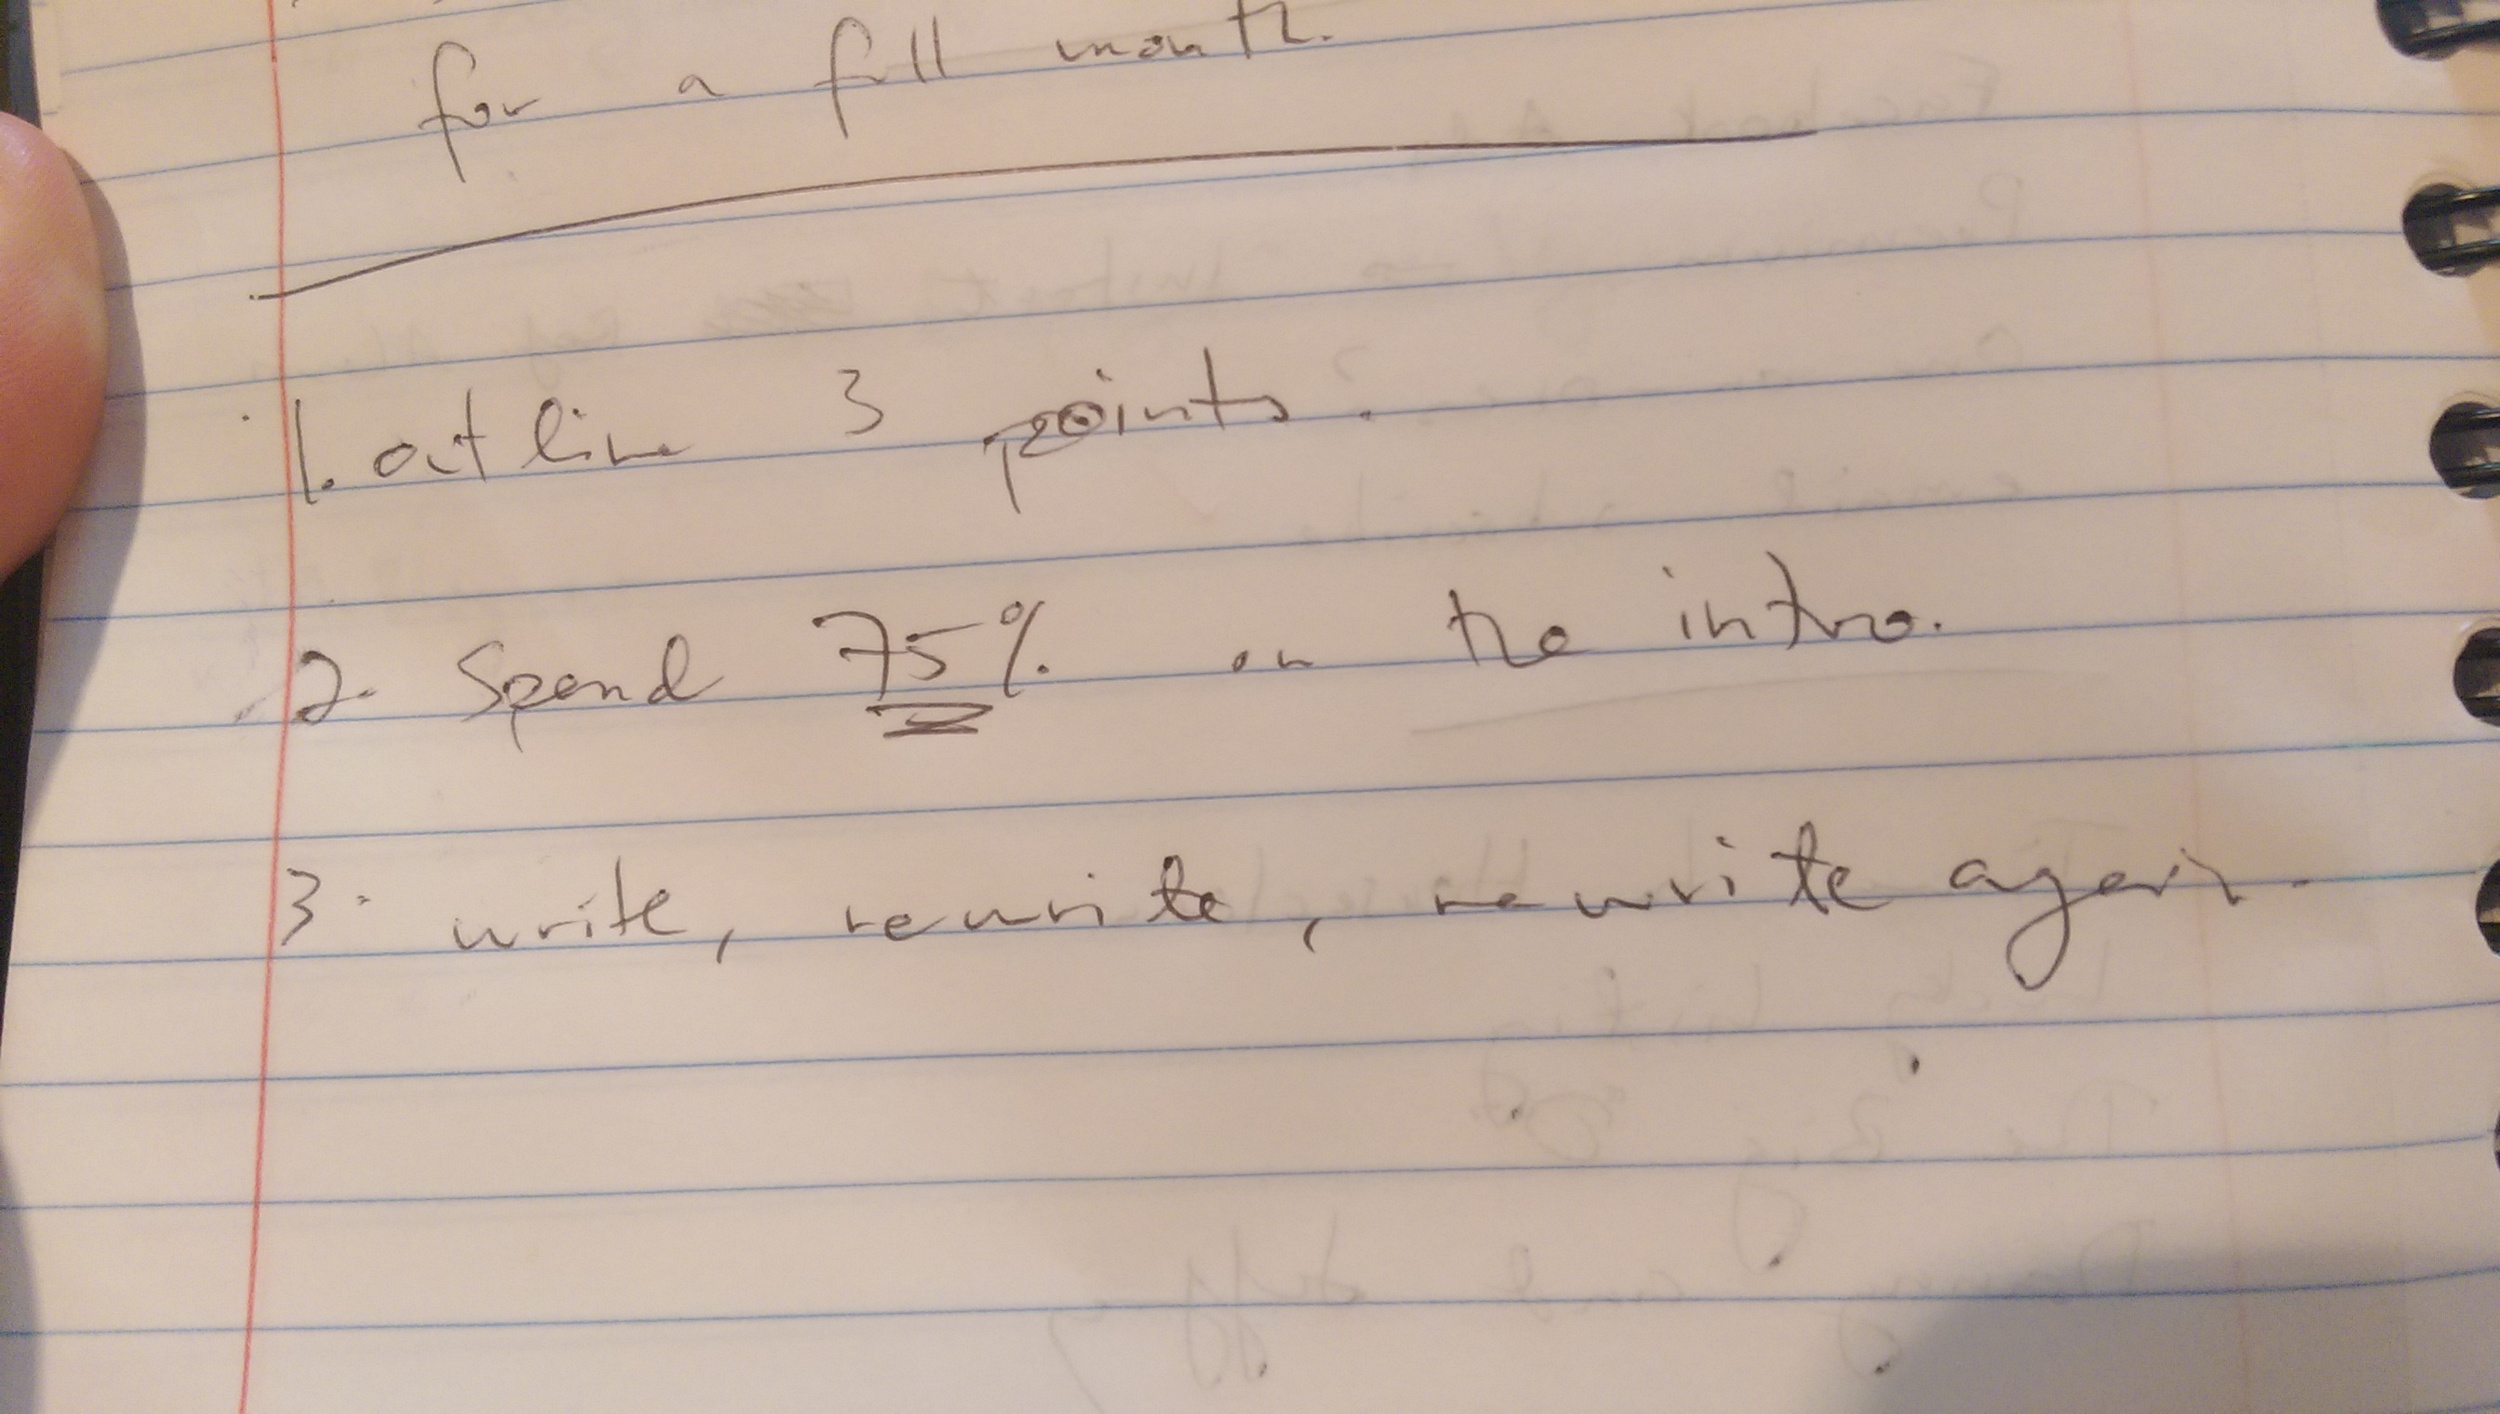 for a full month.
1. outline 3 points.
2. Spend 75% on the intro.
3. write, rewrite, rewrite again.